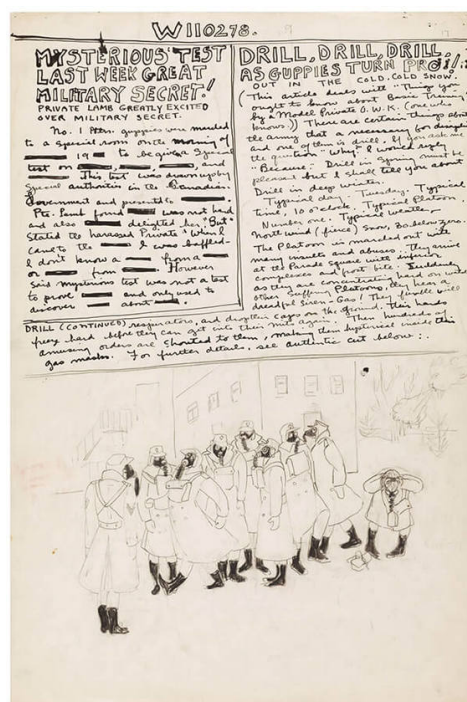 W110278.
MYSTERIOUS TEST
LAST WEEK GREAT
MILITARY SECRET!
PRIVATE LAMB GREATLY EXCITED
OVER MILITARY SECRET.
No. 1 Pltn. guppies were marched
to a special room on the morning of
19 to be given special
test on and
This test was drawn up by
special authorities in the Canadian
Government and presented to
Pte. Lamb found was not hard
and also delighted her. "But"
stated the harassed Private "when I
came to the I was baffled-
I don't know a from a
or from However
said mysterious test was not a test
to prove and only used to
discover about
DRILL, DRILL, DRILL,
AS GUPPIES TURN PRO!!
OUT IN THE COLD, COLD SNOW.
(This article deals with "Things you
ought to know about Basic Training"
by a Model Private O.W.K. (one who
knows.)) There are certain things about
the army that a necessary for discipline
and one of them is drill. If you ask me
the question "Why" I would reply
"Because". Drill in Spring must be
pleasant but I shall tell you about
Drill in deep winter.
Typical day, Tuesday. Typical
time, 10 o'clock. Typical Platoon,
Number one. Typical weather,
North wind (fierce) Snow, 30 below zero.
The Platoon is marched out with
many insults and abuses. They arrive
at the Parade Square with inferior
complexes and frost bite. Suddenly
as they are concentrating hard on
other suffering Platoons, they hear a
dreadful siren! Gas! They fumble with
DRILL (CONTINUED) respirators, and drop their caps on the ground, their hands
freeze hard before they can get into their mitts again. Then hundreds of
amusing orders are shouted to them, making them hysterical inside their
gas masks. For further details, see authentic cut below:.